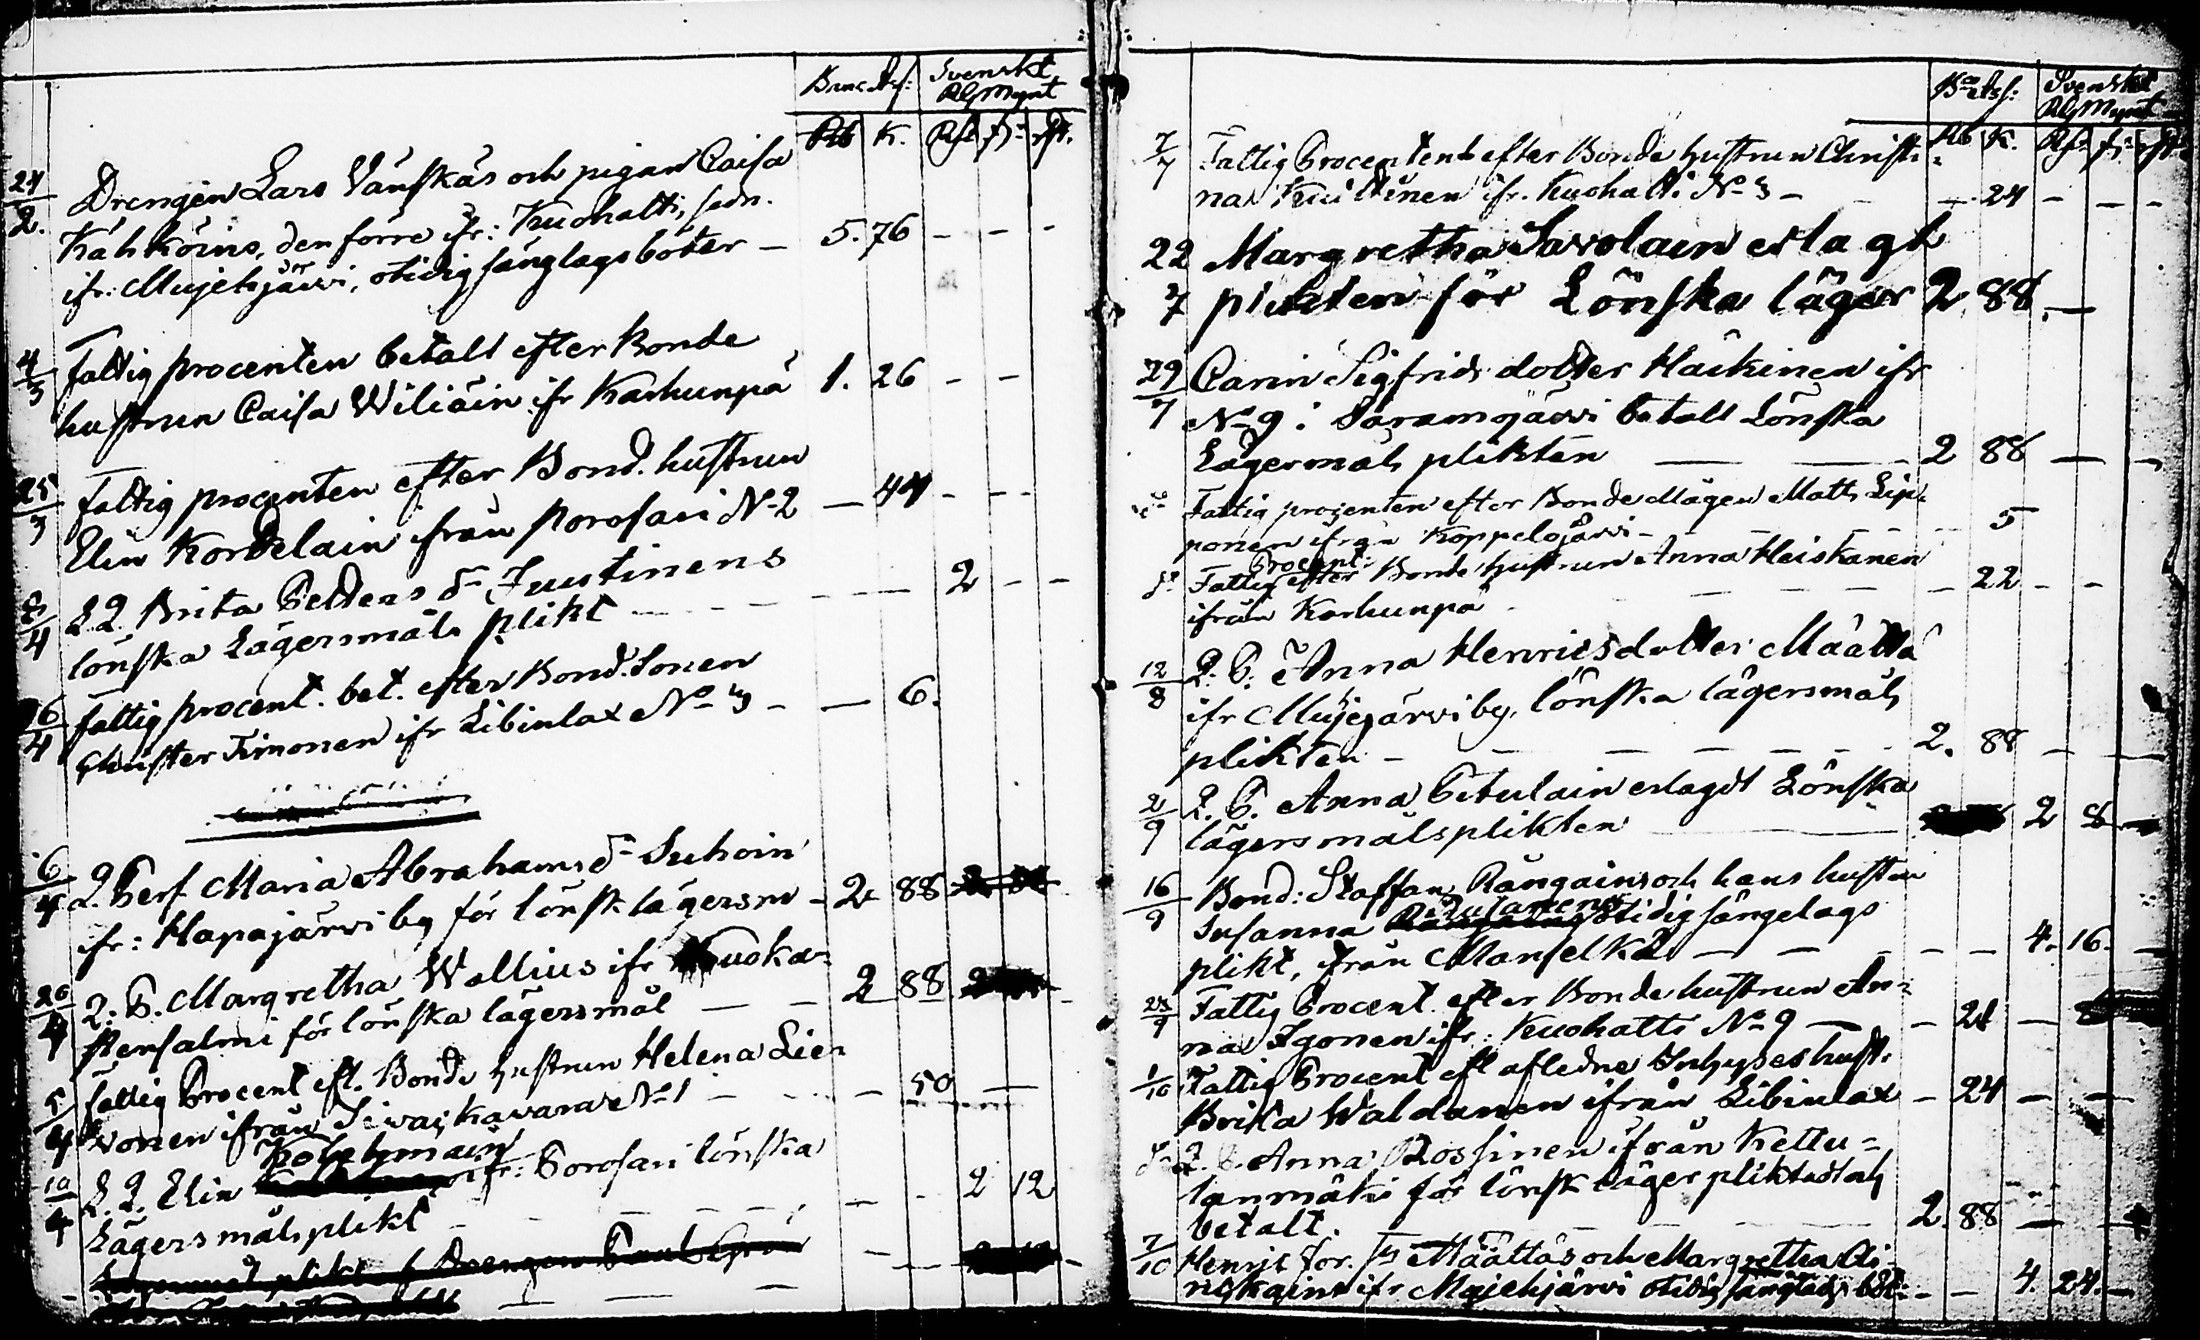 Banc Ass: Svenskt
RGMynt
Rb K. Rd. sk. rst.
24/2. Drengen Lars Vänskäs och pigan Caisa
Kähköins, den förre ifr: Kuohatti, sedn.
ifr: Mujehjärvi, otidig sänglagsböter — 5. 76 - - -
4/3 Fattig procenten betalt efter Bonde
hustrun Caisa Wiliäin ifr Karhunpä 1. 26 - -
25/3 Fattig procenten efter Bond. hustrun
Elin Kordelain ifrån Porosari N-2 — 44 - - -
4 L Q. Brita Peldens dr Juutinens
lönska Lägersmåls plikt - - - 2 - -
16/4 Fattig procent. bet. efter Bond. Sonen
Christer Timonen ifr Libinlax No 3 - — 6.
6/4 Q. Pers. Maria Abrahamsdr Suhoin
ifr: Hapajärvi by för lönsk. lägersm - 2 88
26/4 Q: P. Margretha Wallius ifr Kuoka-
stensalmi för lönska lägersmål — — 2 88
5/4 Fattig Procent eft. Bonde hustrun Helena Lie-
vonen ifrån Sivakavara N-1 - - - 50 —
10/4 L. Q. Elin Kolehmain ifr: Porosari lönska
Lägersmåls plikt - - - 2 12
Bco Ass: Svenskt
RGMynt
Rb K. Rd. sk. rst.
7/7 Fattig Procenten efter Bonde hustrun Christi-
na Kuittinen ifr. Kuohatti No 3 - - 24 - - -
22 Margretha Savolain erlagt
7 plikten för Lönska läger 2 88. —
29/7 Carin Sigfrids dotter Häikinen ifr
No 9 i Saramojärvi betalt Lönska
Lägersmåls plikten — — 2 88 — —
do Fattig procenten efter Bonde Mågen Matts Lip-
ponen ifrån Koppelojärvi - - - 5
do Fattig Procent efter Bonde hustrun Anna Heiskanen
ifrån Karhunpä - - - 22 - -
12/8 Q: P: Anna Henricsdotter Määttä
ifr Mujejärvi by, lönska lägersmåls
plikten - - - 2. 88 —
2/9 Q. P. Anna Pitulain erlagdt Lönska
lägersmålsplikten — 2 8 —
16/9 Bond: Staffan Rångains och hans hustru
Susanna otidig sängelags
plikt, ifrån Manselkä — - - 4. 16. —
9 Fattig Procent efter Bonde hustrun An-
na Igonen ifr: Kuohatti No 9 — - 24 —
1/10 Fattig Procent eft afledne Inhyseshust.
Brita Waldanen ifrån Libinlax - 24 — —
do Q. P. Anna Rossinen ifrån Kettu-
lanmäki för lönsk läger plikt
betalt. 2. 88 — —
7/10 Henric Määttäs och Margretha
ifr Mujehjärvi otidig sänglags böt: - - 4. 24. —